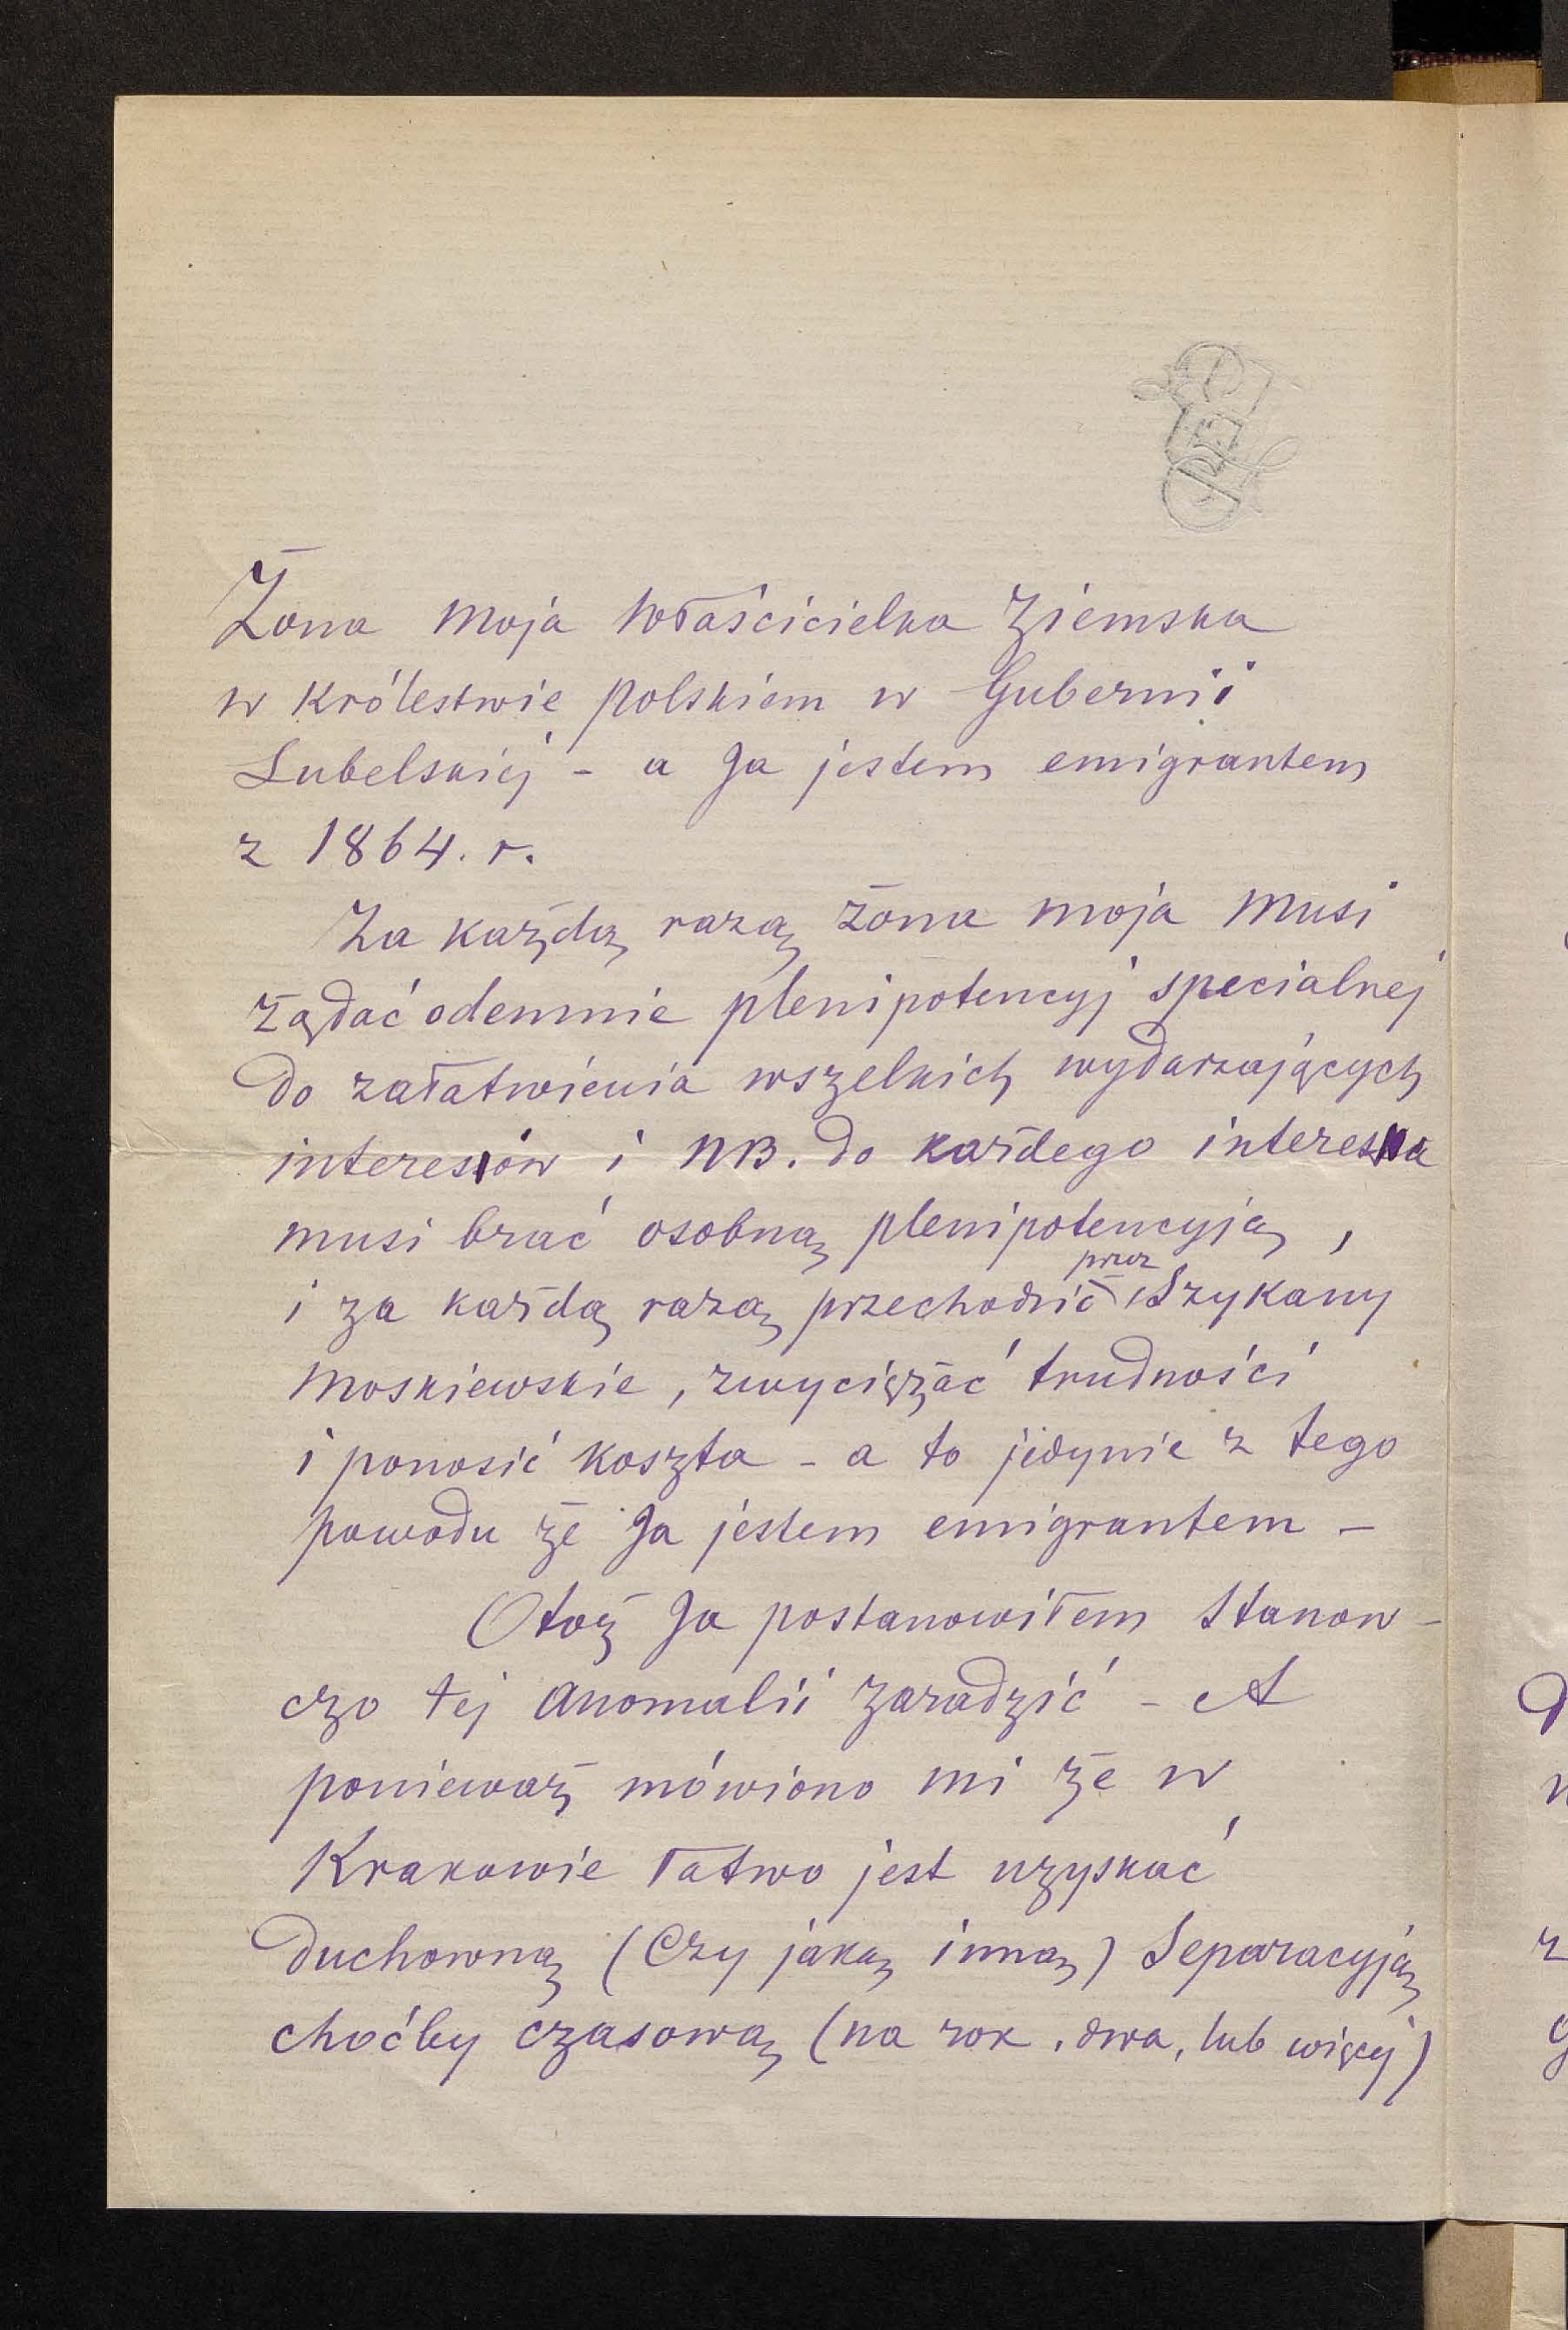 Żona moja Właścicielka Ziemska
w Królestwie polskiem w Gubernii
Lubelskiej - a Ja jestem emigrantem
z 1864. r.
Za każdą razą żona moja musi
żądać odemnie plenipotencyj specialnej
do załatwienia wszelkich wydarzających
interesów i NB. do każdego interesu
musi brać osobną plenipotencyją,
i za każdą razą przechodzić przez Szykany
moskiewskie, zwyciężać trudności
i ponosić koszta - a to jedynie z tego
powodu że Ja jestem emigrantem -
Otoż Ja postanowiłem Stanow-
czo tej anomalii zaradzić - A
ponieważ mówiono mi że w
Krakowie łatwo jest uzyskać
duchowną (Czy jaką inną) Separacyją
choćby czasową (na rok, dwa, lub więcej)